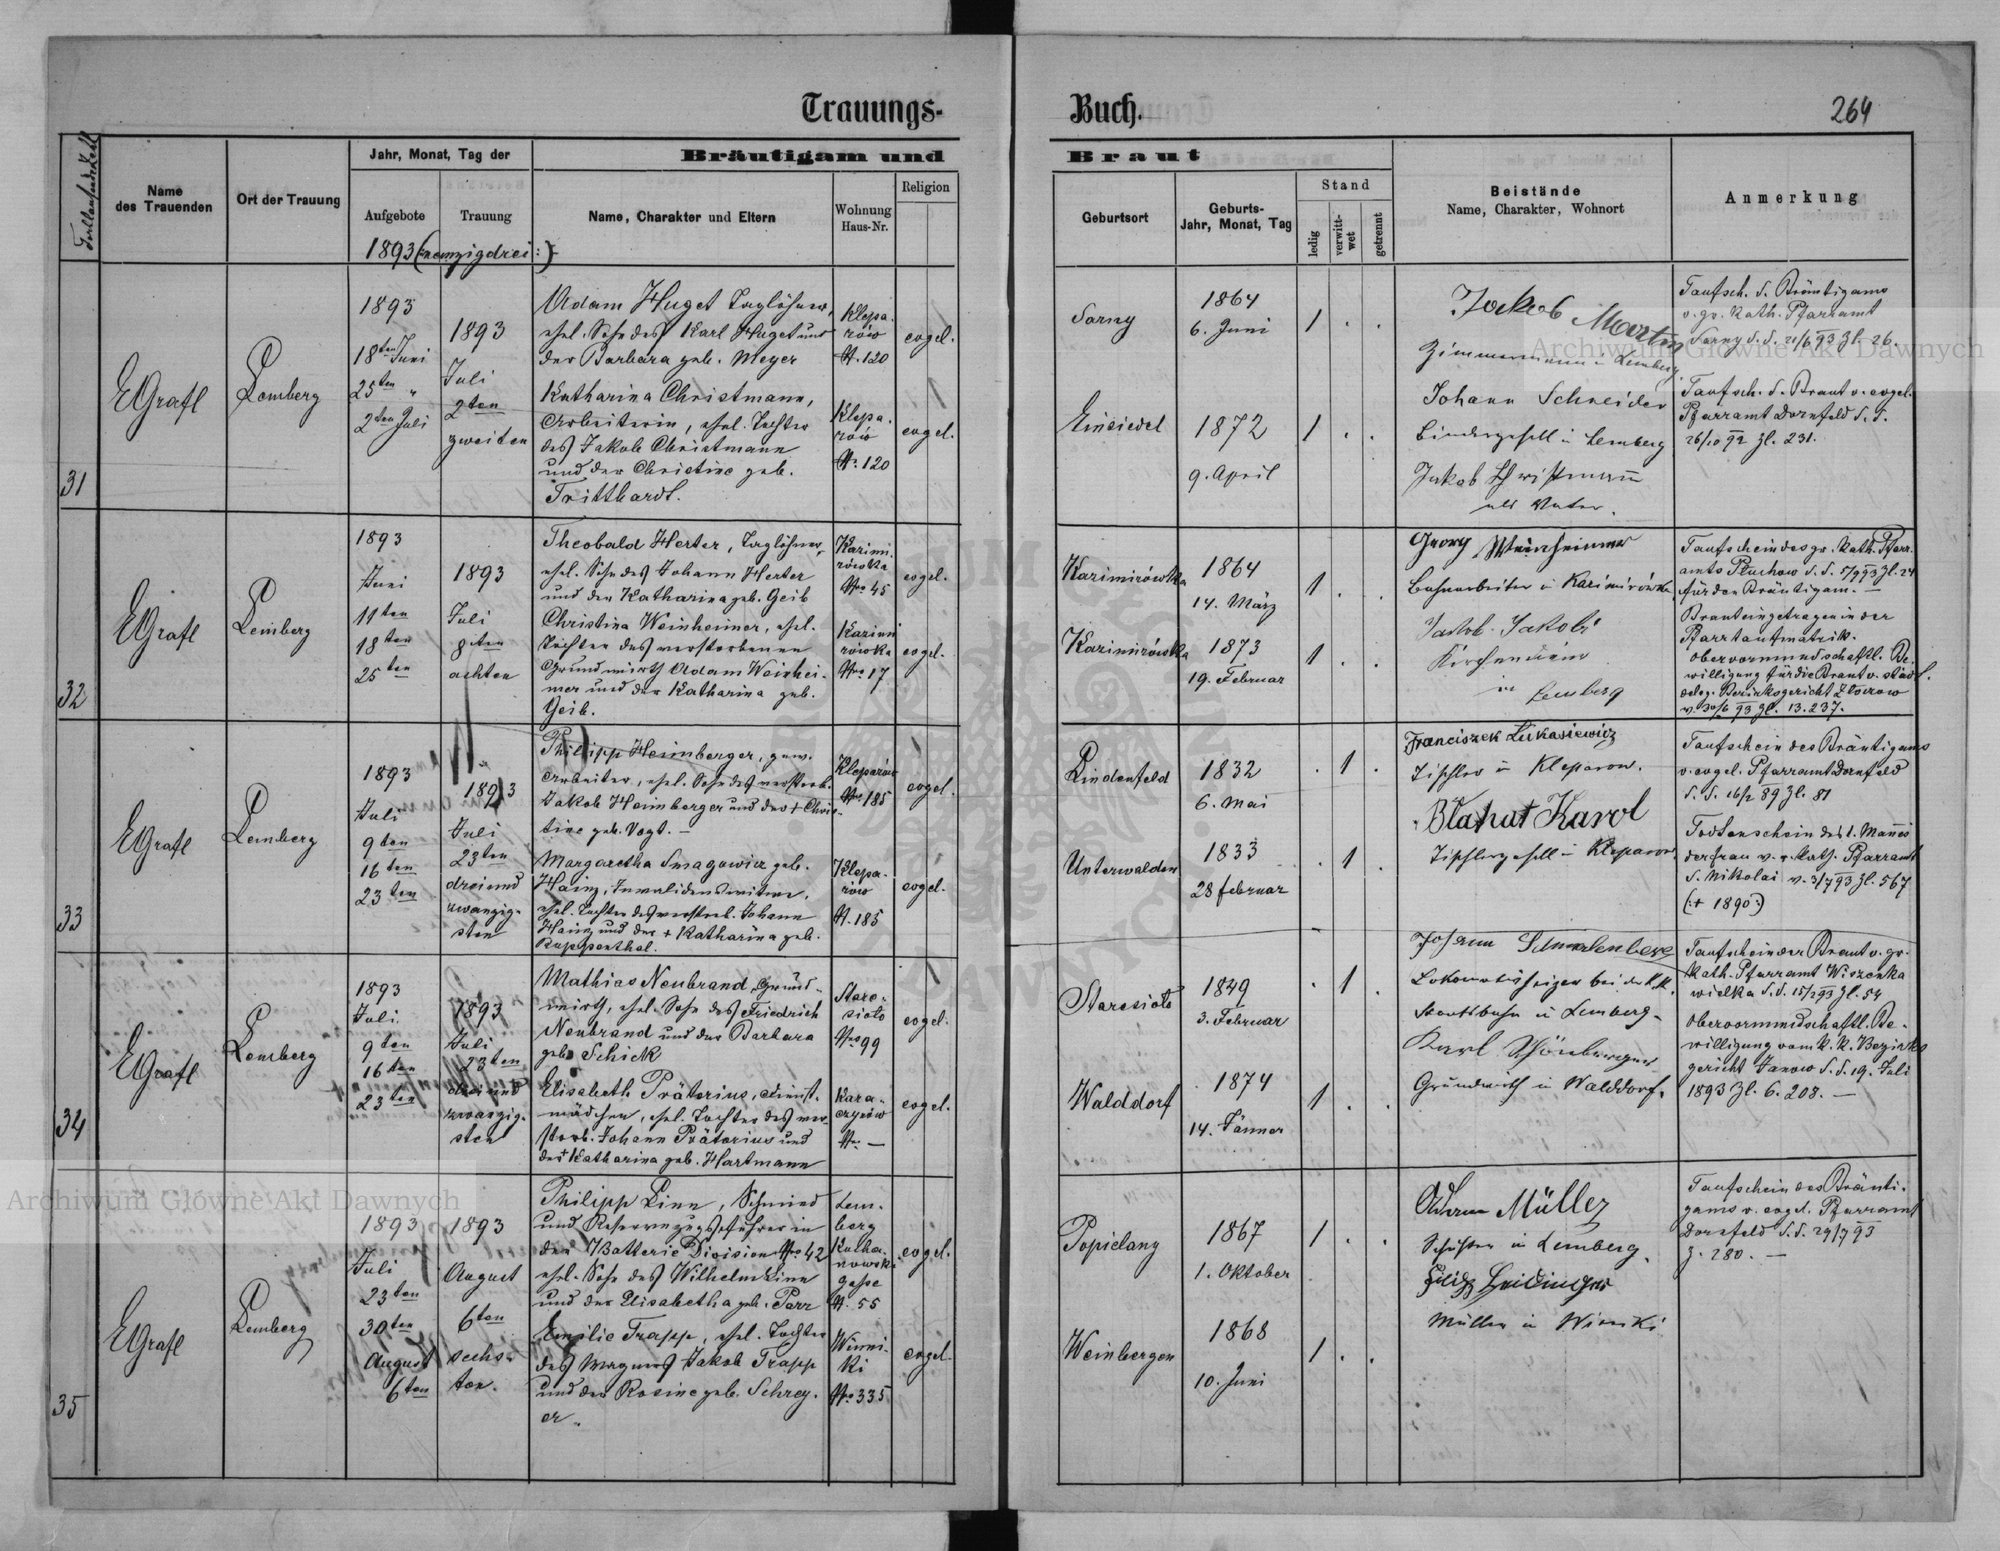 Trauungs-
Buch.
264
Name
des Trauenden
Ort der Trauung
Jahr, Monat, Tag der
Aufgebote
Trauung
Bräutigam und
Name, Charakter und Eltern
Wohnung
Haus-Nr.
Religion
Braut
Geburtsort
Geburts-
Jahr, Monat, Tag
Stand
ledig
verwitt-
wet
getrennt
Beistände
Name, Charakter, Wohnort
Anmerkung
1893 (neunzigdrei:)
31
EGrafl
Lemberg
1893
18ten Juni
25ten "
2ten Juli
1893
Juli
2ten
zweiten
Adam Huget Taglöhner,
ehel. Sohn des Karl Huget und
der Barbara geb. Meyer
Katharina Christmann,
Arbeiterin, ehel. Tochter
des Jakob Christmann
und der Christine geb.
Tritthardt.
Klepa-
rów
N. 120
evgel.
Klepa-
rów
No 120
evgel.
Sarny
1864
6. Juni
1 . .
Einsiedel
1872
9. April
1 . .
Jakob Martin
Zimmermann in Lemberg.
Johann Schneider
Bindergesell in Lemberg
Jakob Christmann
als Vater.
Taufsch. d. Bräutigams
v. gr. Kath. Pfarramt
Sarny d. d. 21/6 93 Zl. 26.
Taufsch. d. Braut v. evgel.
Pfarramt Dornfeld d. d.
26/10 92 Zl. 231.
32
EGrafl
Lemberg
1893
Juni
11ten
18ten
25ten
1893
Juli
8ten
achten
Theobald Herter, Taglöhner,
ehel. Sohn des Johann Herter
und der Katharina geb. Geib
Christina Weinheimer, ehel.
Tochter des verstorbenen
Grundwirth Adam Weinhei-
mer und der Katharina geb.
Geib.
Kazimi-
rówka
No 45
evgel.
Kazimi
rówka
No 17
evgel.
Kazimirówka
1864
14. März
1 . .
Kazimirówka
1873
19. Februar
1 . .
Georg Weinheimer
Bahnarbeiter in Kazimirówka,
Jakob Jakobi
Kirchendiener
in Lemberg
Taufschein des gr. Kath. Pfarr-
amts Pluchow d. d. 5/7 93 Zl. 24
für den Bräutigam. —
Braut eingetragen in der
Pfarrtaufmatrik.
Obervormundschaftl. Be-
willigung für die Braut v. städt.
deleg. Bezirksgericht Złoczow
v. 30/6 93 Zl. 13.237.
33
EGrafl
Lemberg
1893
Juli
9ten
16ten
23ten
1893
Juli
23ten
dreiund
zwanzig-
sten
Philipp Heimberger, gew.
Arbeiter, ehel. Sohn des verstorb.
Jakob Heimberger und der + Chris-
tine geb. Vogt. —
Margaretha Smagowicz geb.
Hainz, Invalidenswitwe,
ehel. Tochter des verstorb. Johann
Hainz und der + Katharina geb.
Ruppenthal.
Kleparów
No 185
evgel.
Klepa-
rów
N. 185
evgel.
Lindenfeld
1832
6. Mai
. 1 .
Unterwalden
1833
28 Februar
. 1 .
Franciszek Łukasiewicz
Tischler in Kleparow.
Błahut Karol
Tischlergesell in Kleparow.
Taufschein des Bräutigams
v. evgel. Pfarramt Dornfeld
d. d. 16/2 89 Zl. 81
Todtenschein des 1. Mannes
der Frau v. r. Kath. Pfarramt
S. Nikolai v. 3/7 93 Zl. 567
(+ 1890:)
34
EGrafl
Lemberg
1893
Juli
9ten
16ten
23ten
1893
Juli
23ten
dreiund
zwanzig-
sten
Mathias Neubrand, Grund-
wirth, ehel. Sohn des Friedrich
Neubrand und der Barbara
geb. Schick
Elisabeth Prätorius, Dienst-
mädchen, ehel. Tochter des ver-
storb. Johann Prätorius und
der + Katharina geb. Hartmann
Stare-
sioło
No 99
evgel.
Kara-
czynów
No —
evgel.
Staresioło
1849
3. Februar
. 1 .
Walddorf
1874
14. Jänner
1 . .
Johann Schmalenberg
Lokomotivheizer bei der k. k.
Staatsbahn in Lemberg.
Karl Schönberger
Grundwirth in Walddorf.
Taufschein der Braut v. gr.
Kath. Pfarramt Wiszenka
wielka d. d. 15/2 93 Zl. 54
Obervormundschaftl. Be-
willigung vom k. k. Bezirks
gericht Janow d. d. 19. Juli
1893 Zl. 6.208. —
35
EGrafl
Lemberg
1893
Juli
23ten
30ten
August
6ten
1893
August
6ten
sechs-
ten.
Philipp Linn, Schmied
und Reservezugsführer in
der Batterie Division No 42
ehel. Sohn des Wilhelm Linn
und der Elisabetha geb. Parr
Emilie Trapp, ehel. Tochter
des Wagners Jakob Trapp
und der Rosine geb. Schrey-
er.
Lem-
berg
gasse
N. 55
evgel.
Winni-
ki
No 335
evgel.
Popielany
1867
1. Oktober
1 . .
Weinbergen
1868
10. Juni
1 . .
Adam Müller
Schuster in Lemberg.
Müller in Winniki
Taufschein des Bräuti-
gams v. evgel. Pfarramt
Dornfeld d. d. 29/7 93
Z. 280. —
Archiwum Główne Akt Dawnych
Archiwum Główne Akt Dawnych